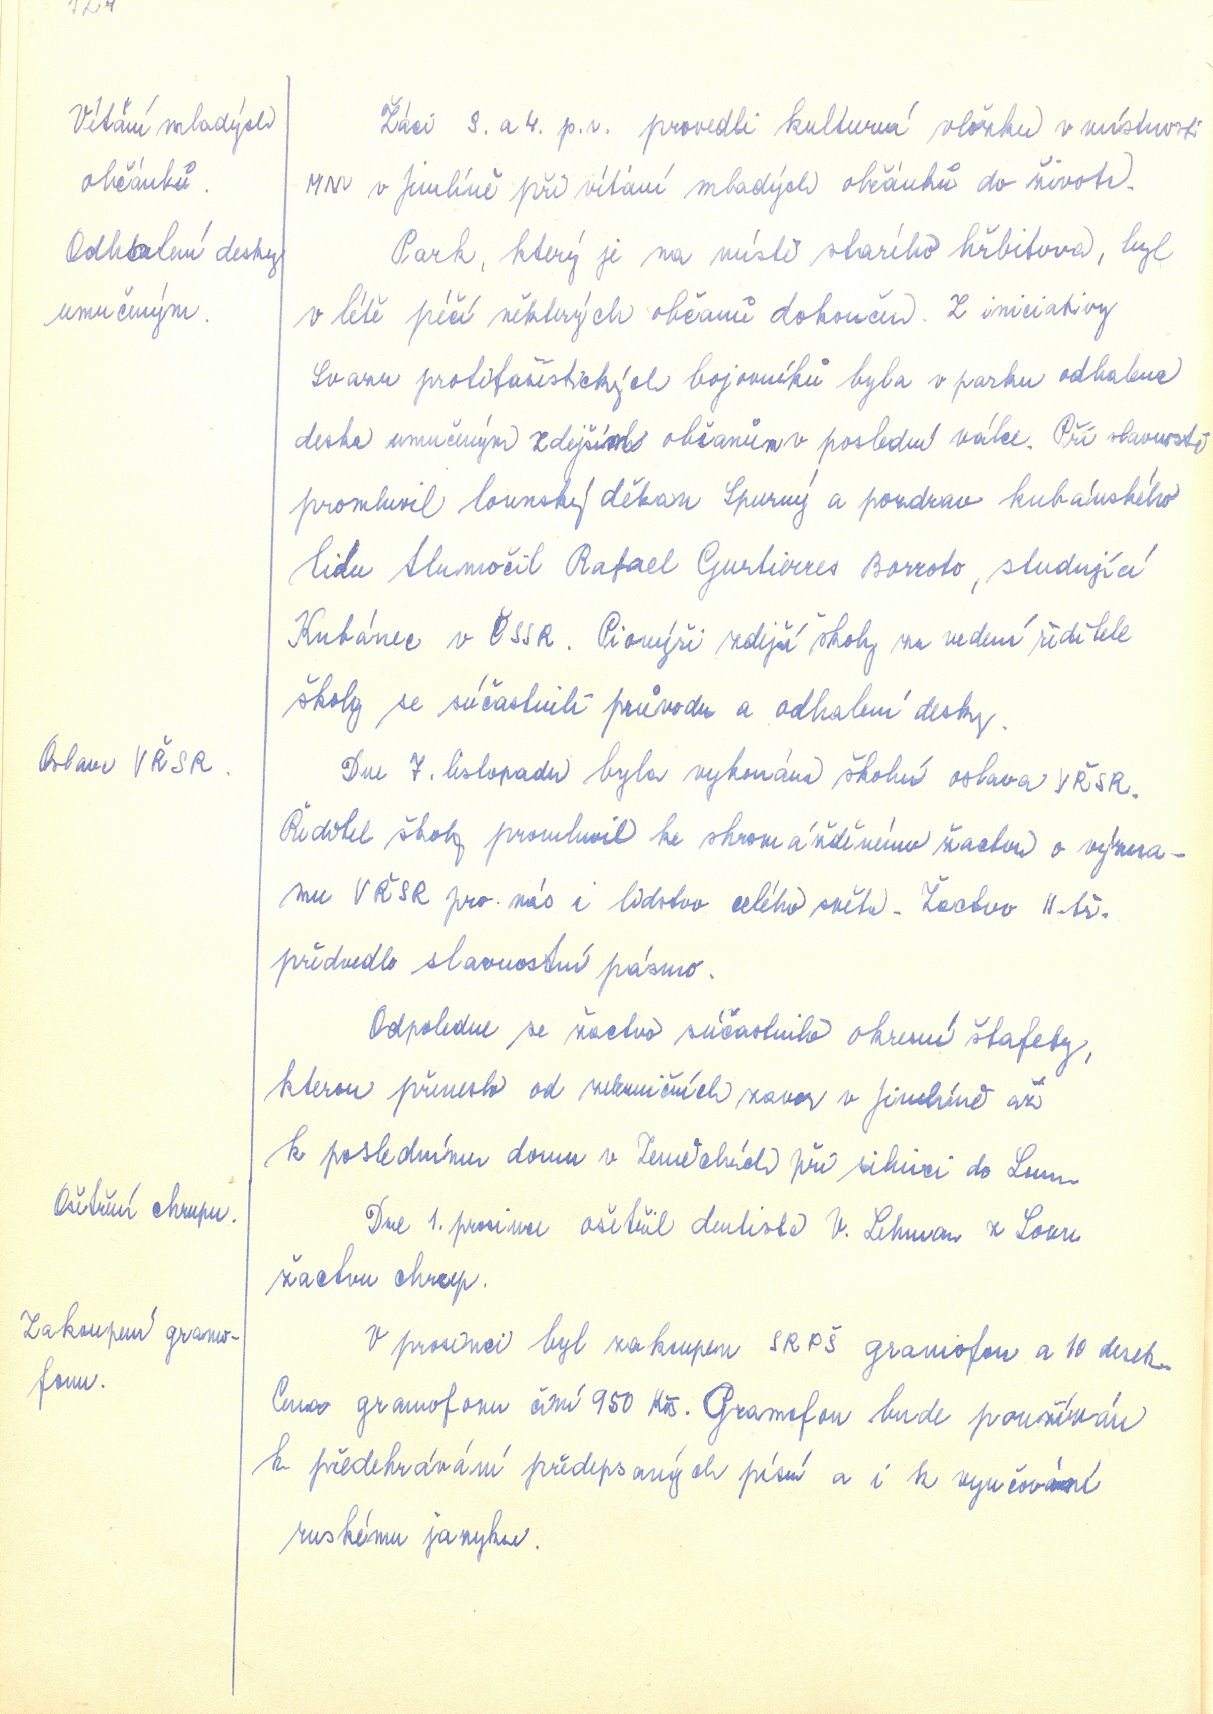 Vítání mladých
občánků.
Žáci 3. a 4. p.r. provedli kulturní vložku v místnosti
MNV v Jimlíně při vítání mladých občánků do života.
Odhalení desky
umučeným.
Park, který je na místě starého hřbitova, byl
v létě péčí některých občanů dokončen. Z iniciativy
Svazu protifašistických bojovníků byla v parku odhalena
deska umučeným zdejším občanům v poslední válce. Při slavnosti
promluvil lounský děkan Spurný a pozdrav kubánského
lidu tlumočil Rafael Gurtierres Borroto, studující
Kubánec v ČSSR. Pionýři zdejší školy za vedení ředitele
školy se súčastnili průvodu a odhalení desky.
Oslava VŘSR.
Dne 7. listopadu byla vykonána školní oslava VŘSR.
Ředitel školy promluvil ke shromážděnému žactvu o význa-
mu VŘSR pro nás i lidstvo celého světa. Žactvo II. tř.
předvedlo slavnostní pásmo.
Odpoledne se žactvo súčastnilo okresní štafety,
kterou přeneslo od železničních závor v Jimlíně až
k poslednímu domu v Zeměchách při silnici do Loun.
Ošetření chrupu.
Dne 1. prosince ošetřil dentista V. Lehman z Loun
žactvu chrup.
Zakoupení gramo-
fonu.
V prosinci byl zakoupen SRPŠ gramofon a 10 desek.
Cena gramofonu činí 950 Kčs. Gramofon bude používán
k předehrávání předepsaných písní a i k vyučování
ruskému jazyku.